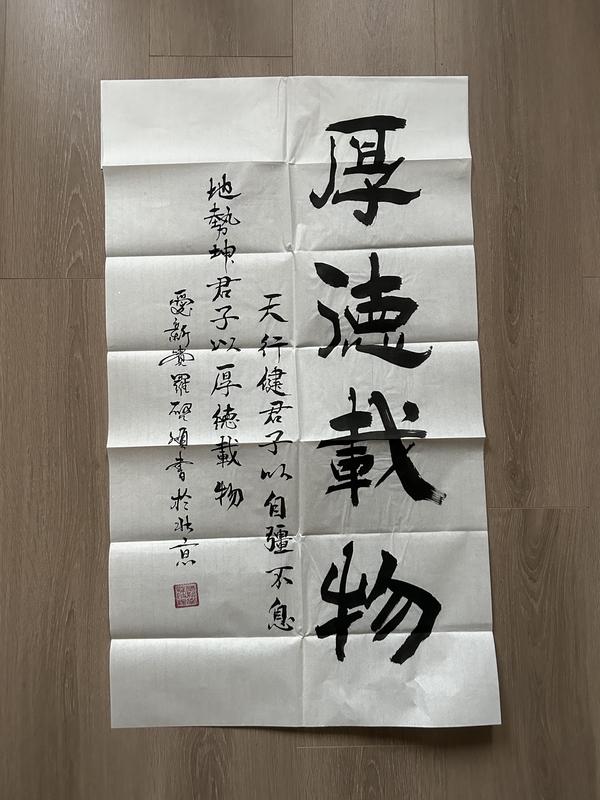 厚德載物
天行健君子以自彊不息
地勢坤君子以厚德載物
愛新覺羅 頌書於北京